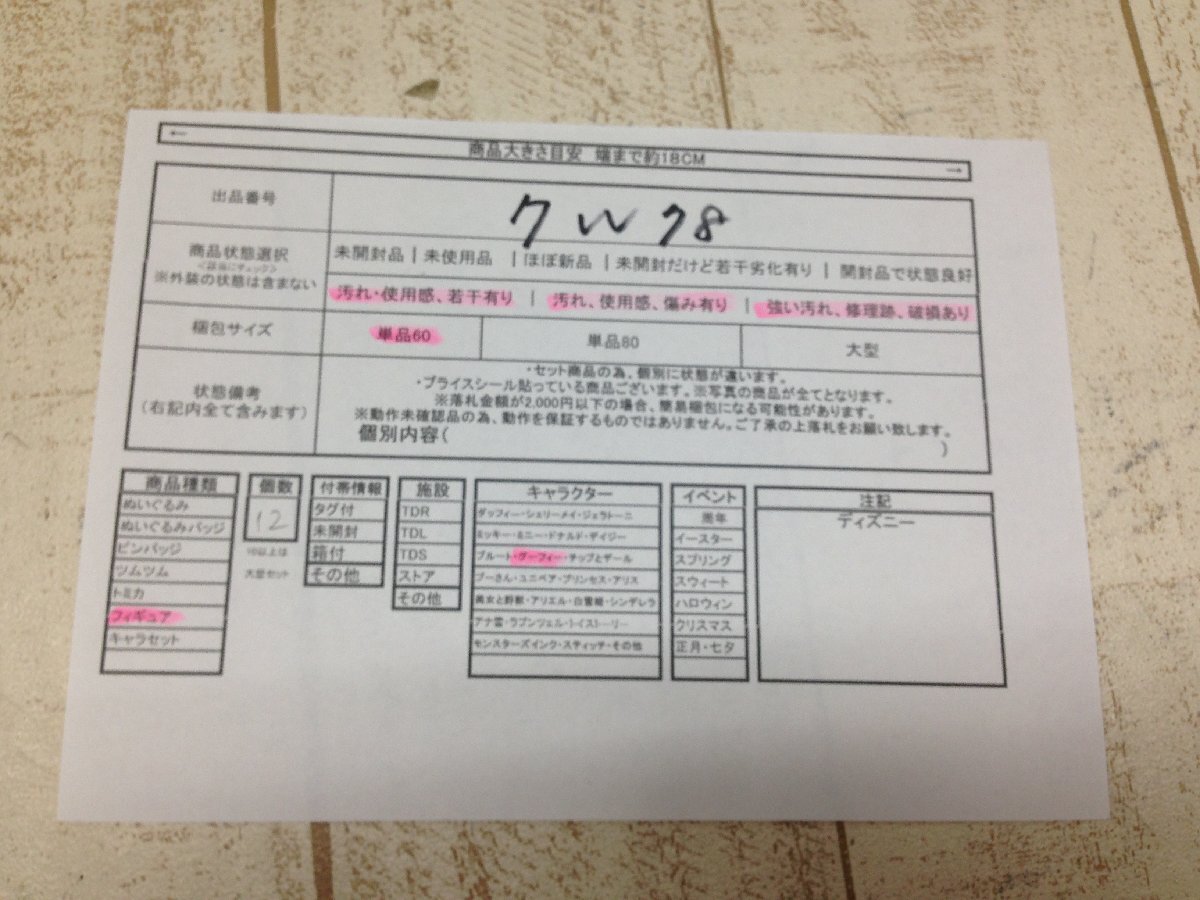 ← 商品大きさ目安 端まで約18CM →
出品番号 7W78
商品状態選択
<該当にチェック>
※外装の状態は含まない
未開封品 | 未使用品 | ほぼ新品 | 未開封だけど若干劣化有り | 開封品で状態良好
汚れ・使用感、若干有り | 汚れ、使用感、傷み有り | 強い汚れ、修理跡、破損あり
梱包サイズ 単品60 単品80 大型
状態備考
(右記内全て含みます)
・セット商品の為、個別に状態が違います。
・プライスシール貼っている商品ございます。※写真の商品が全てとなります。
※落札金額が2,000円以下の場合、簡易梱包になる可能性があります。
※動作未確認品の為、動作を保証するものではありません。ご了承の上落札をお願い致します。
個別内容( )
商品種類
ぬいぐるみ
ぬいぐるみバッジ
ピンバッジ
ツムツム
トミカ
フィギュア
キャラセット
個数
12
10以上は
大型セット
付帯情報
タグ付
未開封
箱付
その他
施設
TDR
TDL
TDS
ストア
その他
キャラクター
ダッフィー・シェリーメイ・ジェラトーニ
ミッキー・ミニー・ドナルド・デイジー
プルート・グーフィー・チップとデール
プーさん・ユニベア・プリンセス・アリス
美女と野獣・アリエル・白雪姫・シンデレラ
アナ雪・ラプンツェル・トイストーリー
モンスターズインク・スティッチ・その他
イベント
周年
イースター
スプリング
スウィート
ハロウィン
クリスマス
正月・七夕
注記
ディズニー